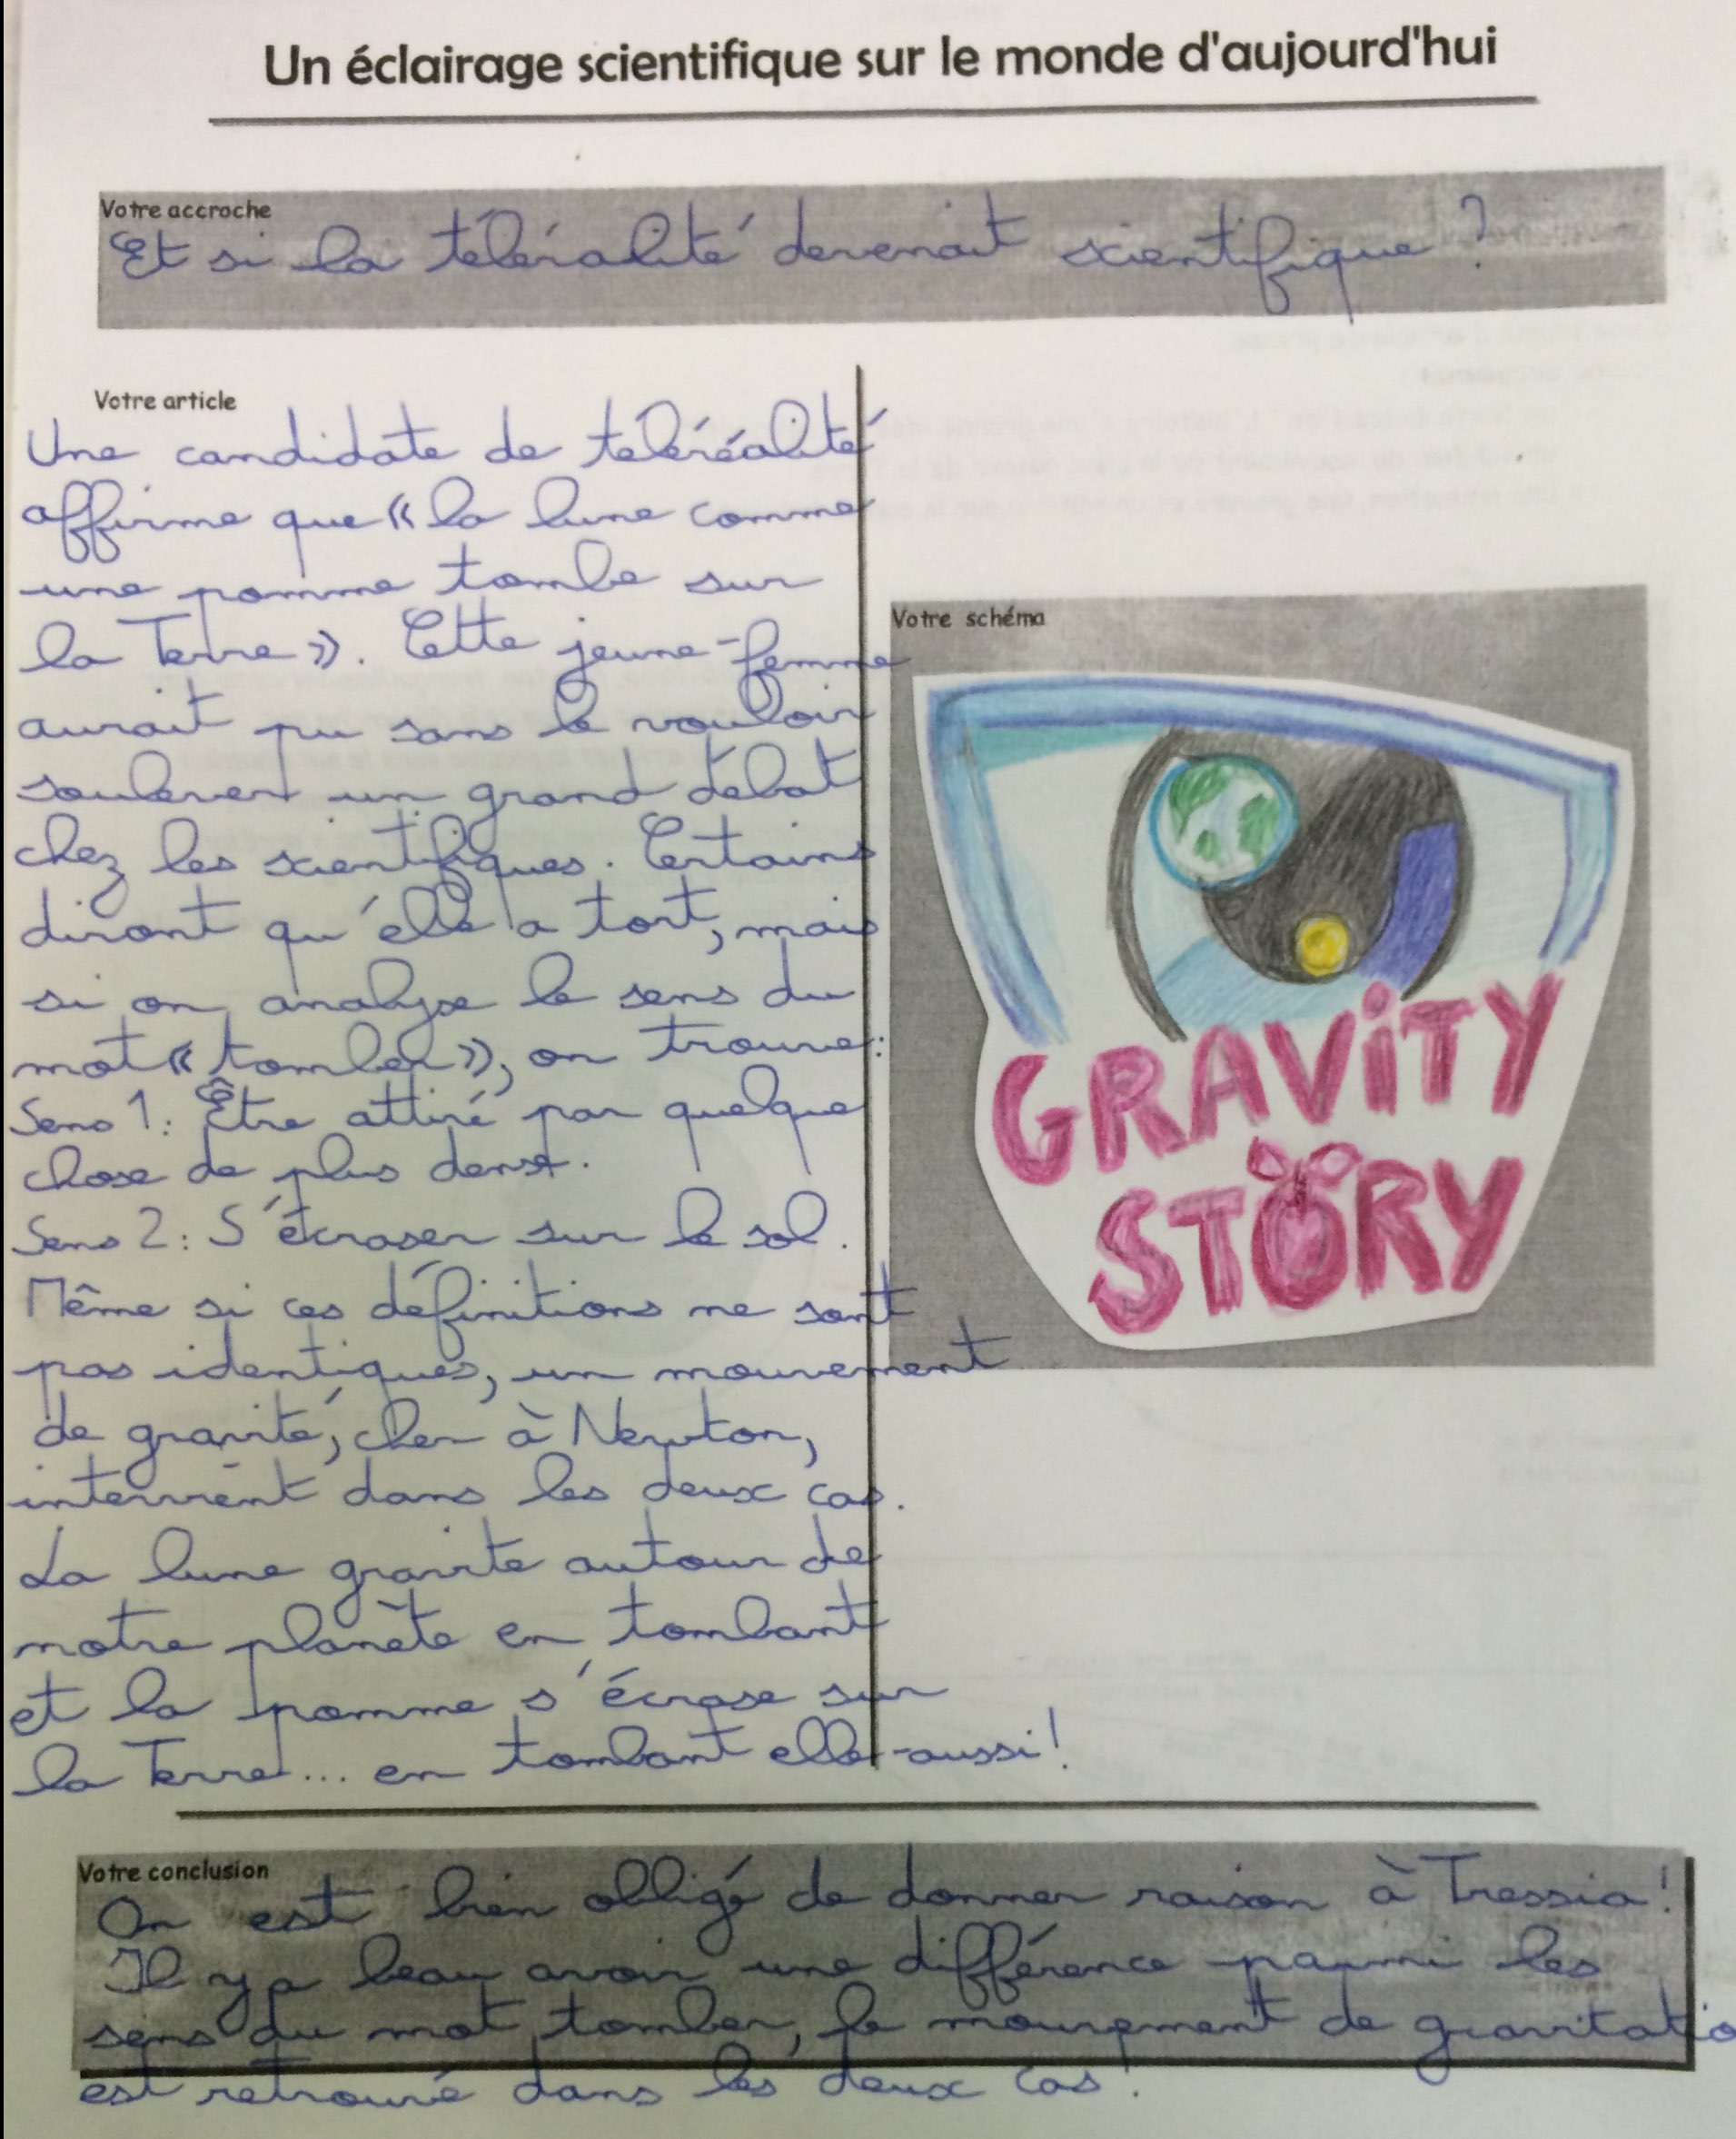 Un éclairage scientifique sur le monde d'aujourd'hui
Votre accroche
Et si la téléréalité devenait scientifique ?
Votre article
Une candidate de téléréalité
affirme que « la lune comme
une pomme tombe sur
la Terre ». Cette jeune-femme
aurait pu sans le vouloir
soulever un grand débat
chez les scientifiques. Certains
diront qu'elle a tort, mais
si on analyse le sens du
mot « tomber », on trouve :
Sens 1 : Être attiré par quelque
chose de plus dense.
Sens 2 : S'écraser sur le sol.
Même si ces définitions ne sont
pas identiques, un mouvement
de gravité, cher à Newton,
intervient dans les deux cas.
La lune gravite autour de
notre planète en tombant
et la pomme s'écrase sur
la Terre... en tombant elle-aussi !
Votre schéma
GRAVITY
STORY
Votre conclusion
On est bien obligé de donner raison à Tressia !
Il y a beau avoir une différence parmi les
sens du mot tomber, le mouvement de gravitatio
est retrouvé dans les deux cas !